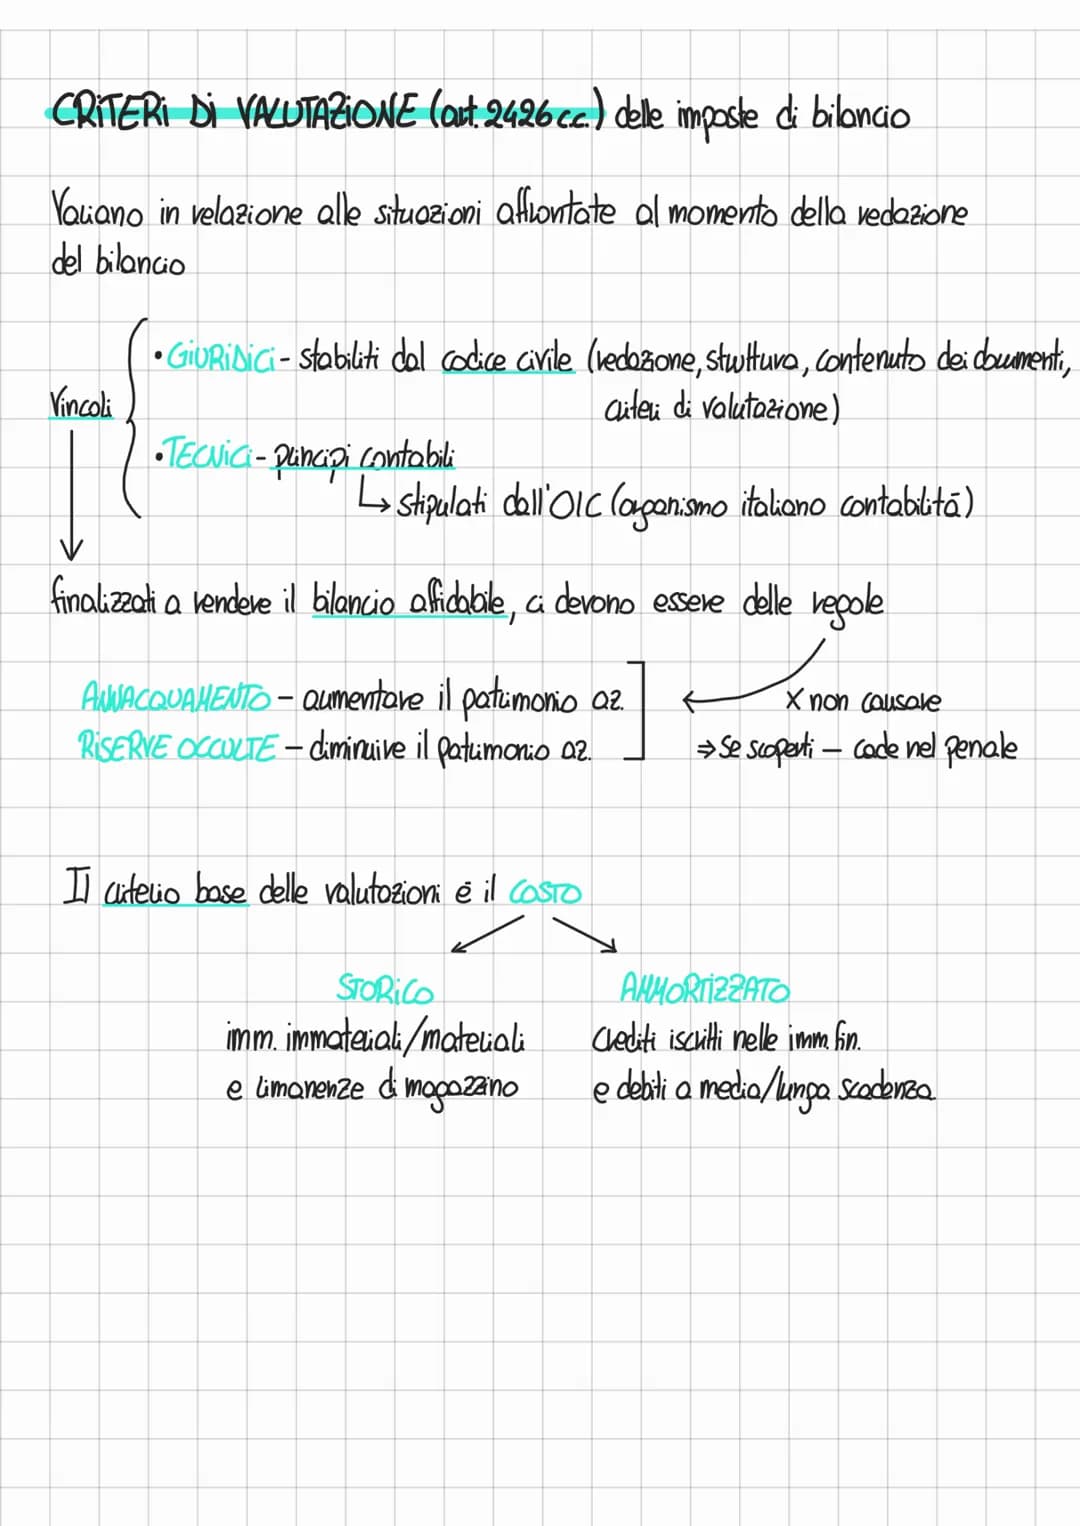 CRITERI DI VALUTAZIONE (art. 2426 c.c.) delle imposte di bilancio
Variano in relazione alle situazioni affrontate al momento della redazione
del bilancio
Vincoli
• GIURIDICI - stabiliti dal codice civile (redazione, struttura, contenuto dei documenti,
criteri di valutazione)
• TECNICI - principi contabili
↳ stipulati dall'OIC (organismo italiano contabilità)
finalizzati a rendere il bilancio affidabile, ci devono essere delle regole
ANNACQUAMENTO - aumentare il patrimonio az.
X non causare
RISERVE OCCULTE - diminuire il patrimonio az.
⇒ Se scoperti - cade nel penale
Il criterio base delle valutazioni è il COSTO
STORICO
AMMORTIZZATO
imm. immateriali/materiali
Crediti iscritti nelle imm. fin.
e rimanenze di magazzino
e debiti a media/lunga scadenza